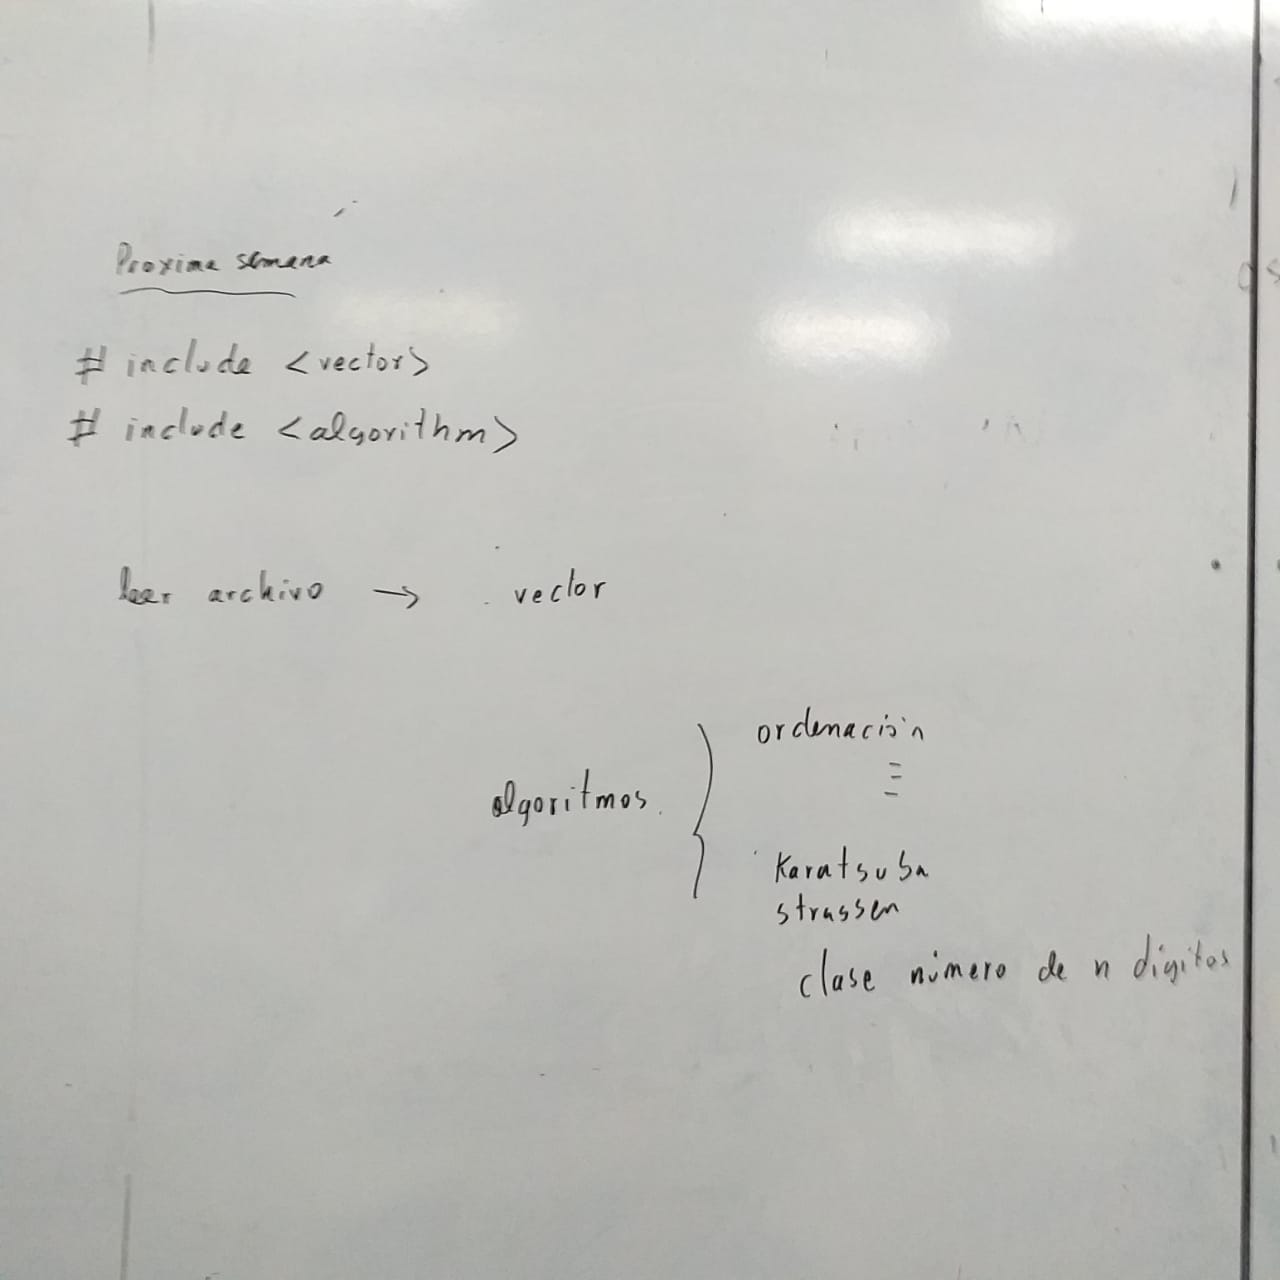 Proxima semana
# include <vector>
# include <algorithm>
leer archivo → vector
algoritmos
ordenación
Karatsuba
strassen
clase número de n dígitos